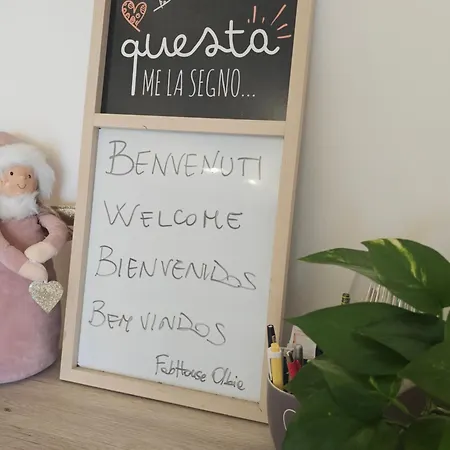 questa
ME LA SEGNO...
BENVENUTI
WELCOME
BIENVENIDOS
BEM VINDOS
FabHouse Olbia